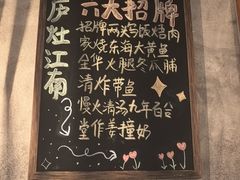 庐灶江南
六大招牌
招牌两鸡饭焙肉
家烧东海大黄鱼
金华火腿冬瓜脯
清炸带鱼
慢火清汤九年百合
堂作姜撞奶